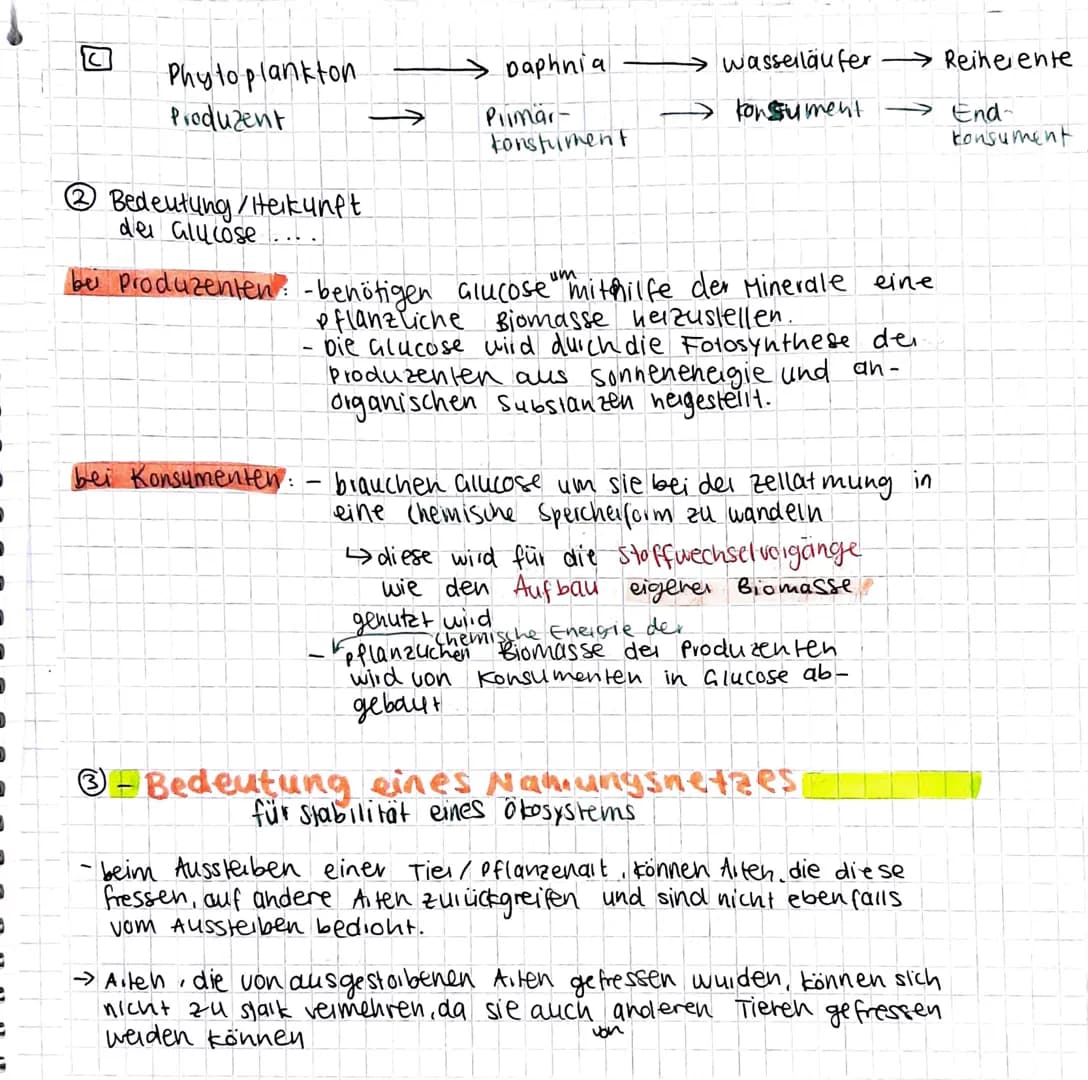 C
Phytoplankton → Daphnia → Wasserläufer → Reiherente
Produzent → Primär- → Konsument → End-
konstument konsument
② Bedeutung/Herkunft
der Glucose ....
bei Produzenten: - benötigen Glucose um mithilfe der Minerale eine
pflanzliche Biomasse herzustellen.
- Die Glucose wird durch die Fotosynthese der
Produzenten aus Sonnenenergie und an-
organischen Substanzen hergestellt.
bei Konsumenten: - brauchen Glucose um sie bei der Zellatmung in
eine chemische Speicherform zu wandeln
↳ diese wird für die Stoffwechselvorgänge
wie den Aufbau eigener Biomasse
genutzt wird
chemische Energie der
- pflanzlichen Biomasse der Produzenten
wird von Konsumenten in Glucose ab-
gebaut
③ - Bedeutung eines Nahrungsnetzes
für Stabilität eines Ökosystems
- beim Aussterben einer Tier/Pflanzenart, können Arten, die diese
fressen, auf andere Arten zurückgreifen und sind nicht ebenfalls
vom Aussterben bedroht.
→ Arten, die von ausgestorbenen Arten gefressen wurden, können sich
nicht zu stark vermehren, da sie auch von anderen Tieren gefressen
werden können